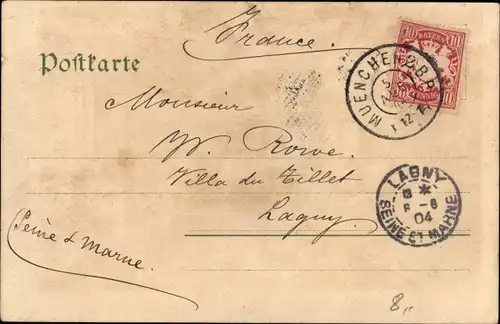 France.
Postkarte
10 BAYERN 10
PFENNIG
MUENCHEN 2 B.B.
12-1
Monsieur
W. Rowe.
Villa du Tillet
Lagny
Seine & Marne.
LAGNY
8 *
8 - 6
04
SEINE ET MARNE
8,-